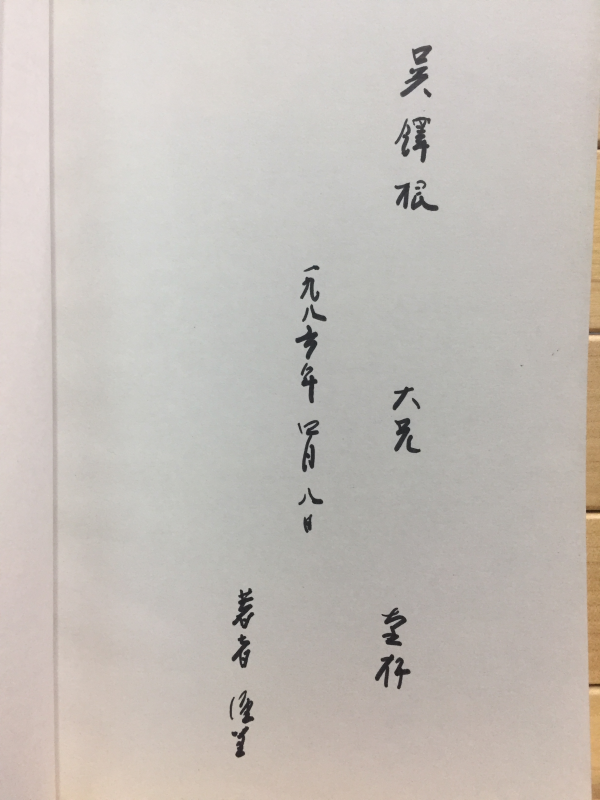 吳鐸根 大兄 惠存
一九八六年 四月 八日
著者 謹呈